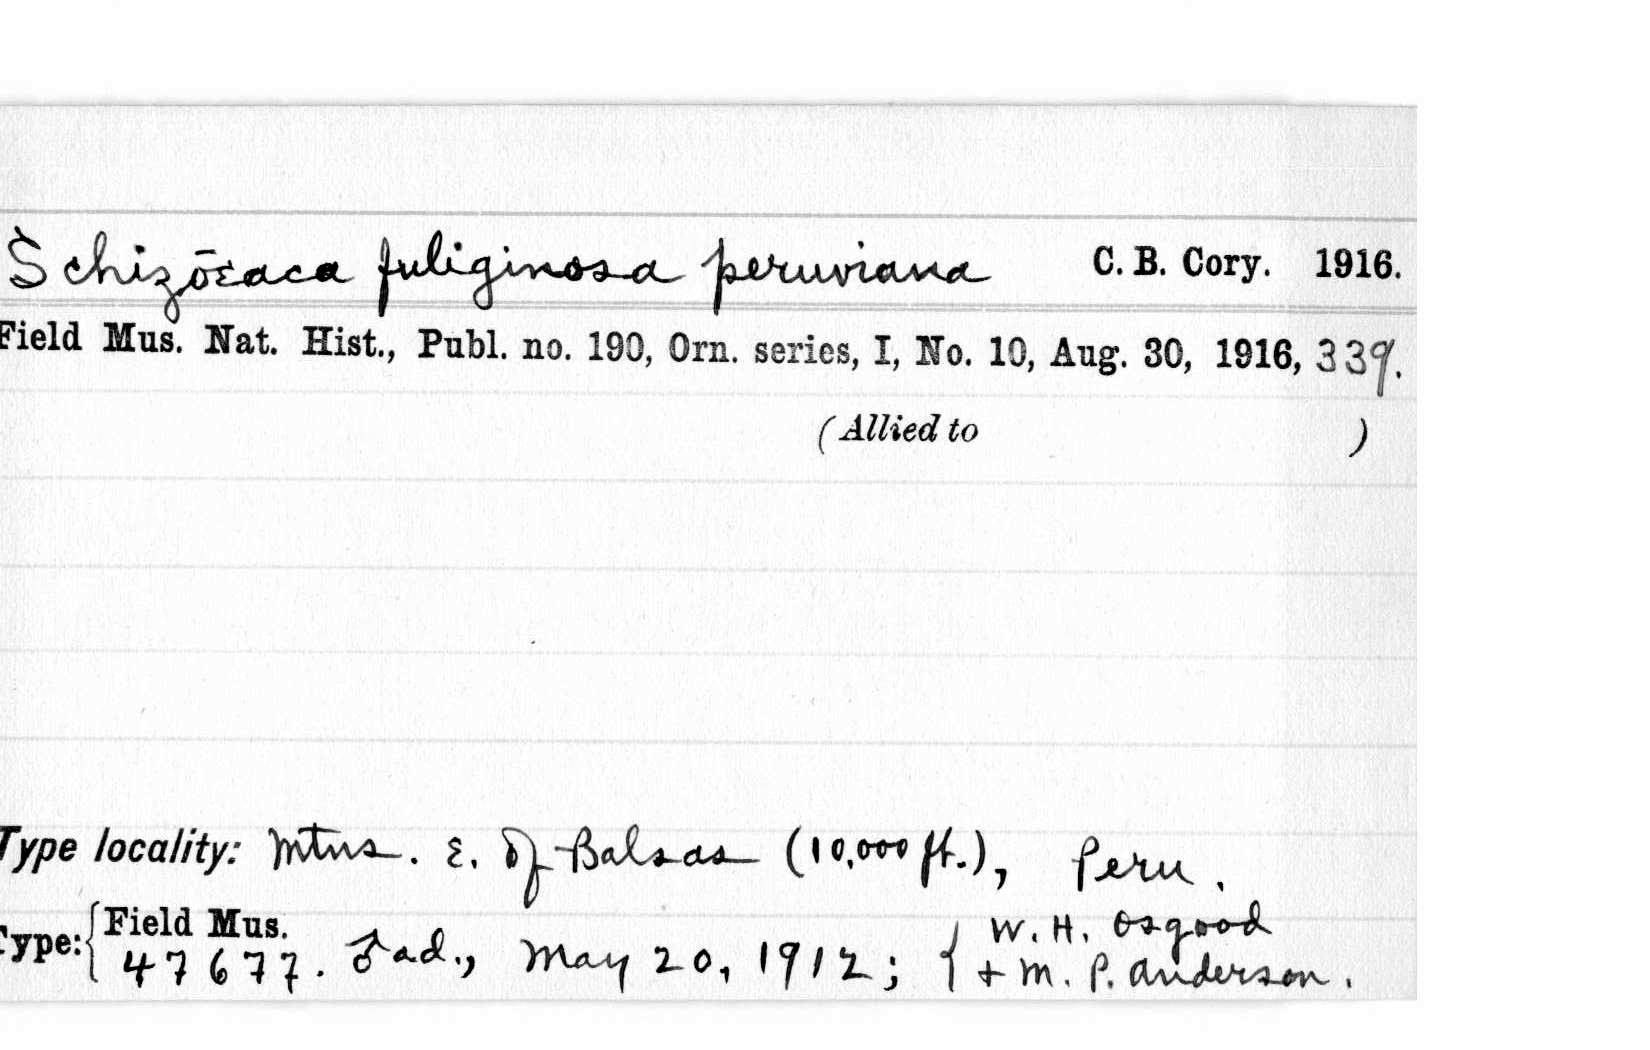 Schizōeaca fuliginosa peruviana C. B. Cory. 1916.
Field Mus. Nat. Hist., Publ. no. 190, Orn. series, I, No. 10, Aug. 30, 1916, 339.
(Allied to )
Type locality: Mtns. E. of Balsas (10,000 ft.), Peru.
Type: { Field Mus. 47677. ♂ ad., May 20, 1912; { W. H. Osgood
+ M. P. Anderson.